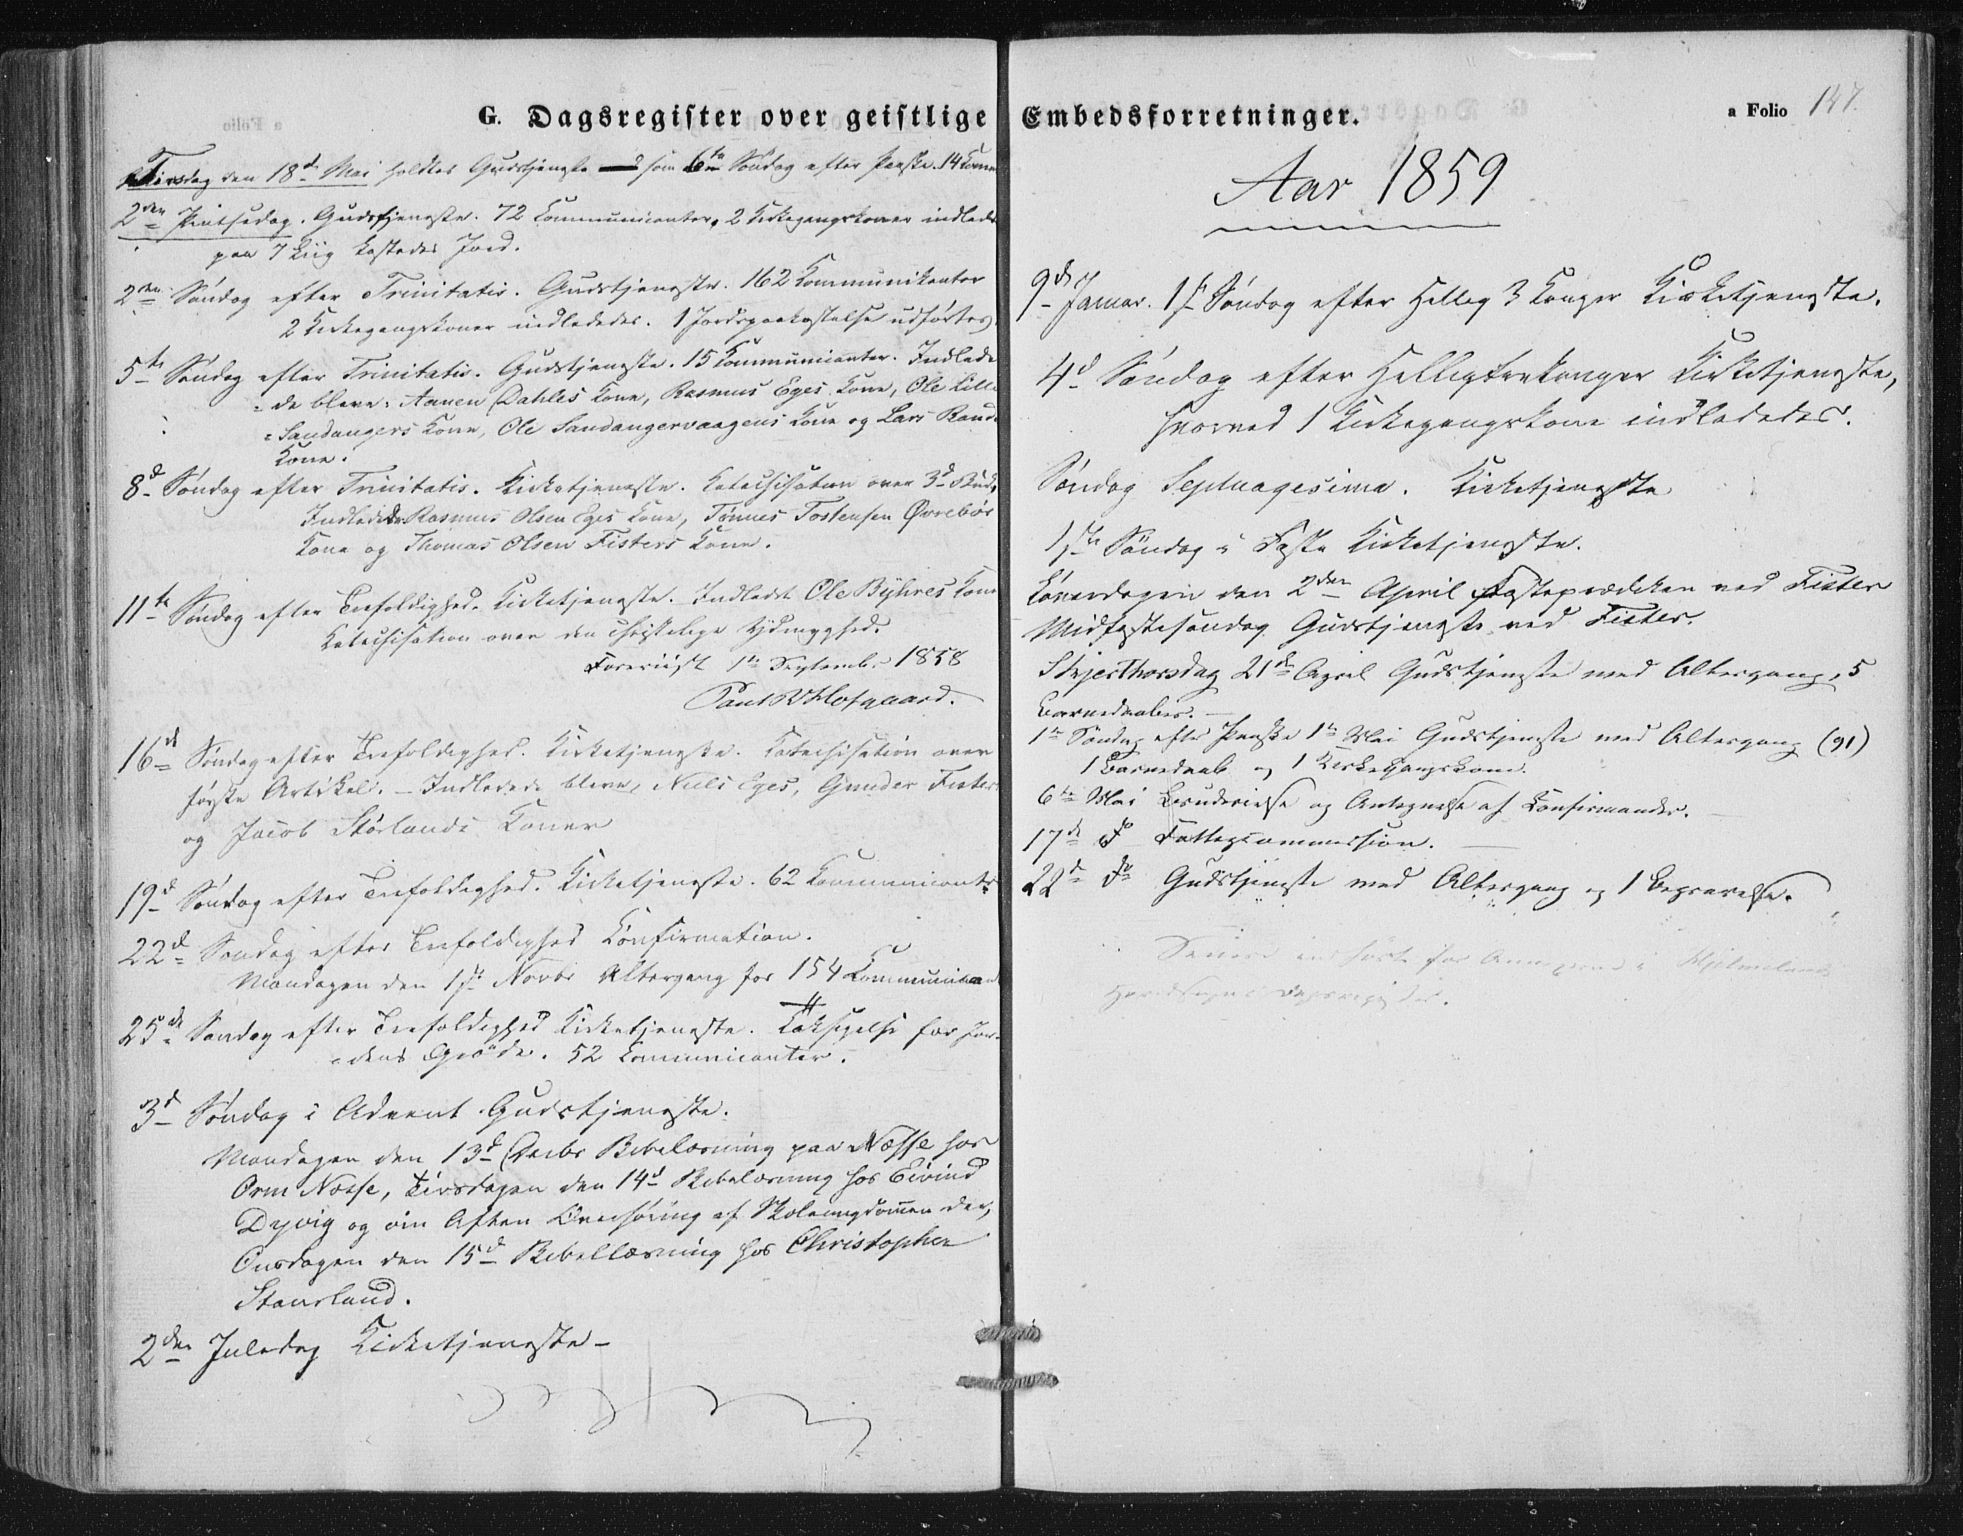 G. Dagsregister over geistlige
Tirsdag den 18d Mai holdtes Gudstjeneste som 6te Søndag efter Paaske. 14 Comm
2den Pintsedag. Gudstjeneste. 72 Communicanter, 2 Kirkegangskoner indlededes
paa 7 Liig kastedes Jord.
2den Søndag efter Trinitatis. Gudstjeneste. 162 Kommunikanter
2 Kirkegangskoner indlededes. 1 Jordspaakastelse udførtes.
5te Søndag efter Trinitatis. Gudstjeneste. 15 Communicanter. Indlede-
de bleve: Aanen Dahles Kone, Rasmus Eges Kone, Ole Lille
Sandangers Kone, Ole Sandangervaagens Kone og Lars Rands
Kone.
8d Søndag efter Trinitatis. Kirketjeneste. Katechisation over 3d Bud.
Indlededes Rasmus Olsen Eges Kone, Tønnes Tostensen Øvrebøs
Kone og Thomas Olsen Fisters Kone.
11te Søndag efter Trefoldighed. Kirketjeneste. Indledt Ole Byhres Kone
Katechisation over den christelige Ydmyghed.
Foreviist 1te Septembr 1858
Paul V Hofgaard.
16de Søndag efter Trefoldighed. Kirketjeneste. Katechisation over
første Artikel. – Indledede bleve, Niels Eges, Gunder Fisters
og Jacob Størlands Koner
19d Søndag efter Trefoldighed. Kirketjeneste. 62 Communicants
22d Søndag efter Trefoldighed Confirmation.
Mandagen den 1ste Novbr Altergang for 154 Communican
25de Søndag efter Trefoldighed Kirketjeneste. Taksigelse for Jor-
dens Grøde. 52 Communicanter.
3d Søndag i Advent Gudstjeneste.
Mandagen den 13d Decbr Bibellæsning paa Næsse hos
Orm Næsse, Tirsdagen den 14d Bibellæsning hos Eivind
Dyvig og om Aften Overhøring af Skoleungdommen der,
Onsdagen den 15d Bibellæsning hos Christopher
Stensland.
2den Juledag Kirketjeneste –
Embedsforretninger.
a Folio 147.
Aar 1859
9d Januar. 1ste Søndag efter Hellig 3 Konger Kirketjeneste.
4d Søndag efter Helligtrekonger Kirketjeneste,
hvorved 1 Kirkegangskone indlededes.
Søndag Septuagesima. Kirketjeneste
1ste Søndag i Faste Kirketjeneste.
Løverdagen den 2den April Fasteprædiken ved Fister
Midfastesøndag Gudstjeneste ved Fister.
Skjerthorsdag 21de April Gudstjeneste med Altergang, 5
Barnedaaber. –
1te Søndag efter Paaske 1te Mai Gudstjeneste med Altergang (91)
1 Barnedaab og 1 Kirkegangskone.
6te Mai og Antegnelse af Confirmander. –
17de do Fattigcommission. –
22d do Gudstjeneste med Altergang og 1 Begravelse.
Senere indført for Annexerne i Hjelmelands
Hovedsogns Dagsregister.